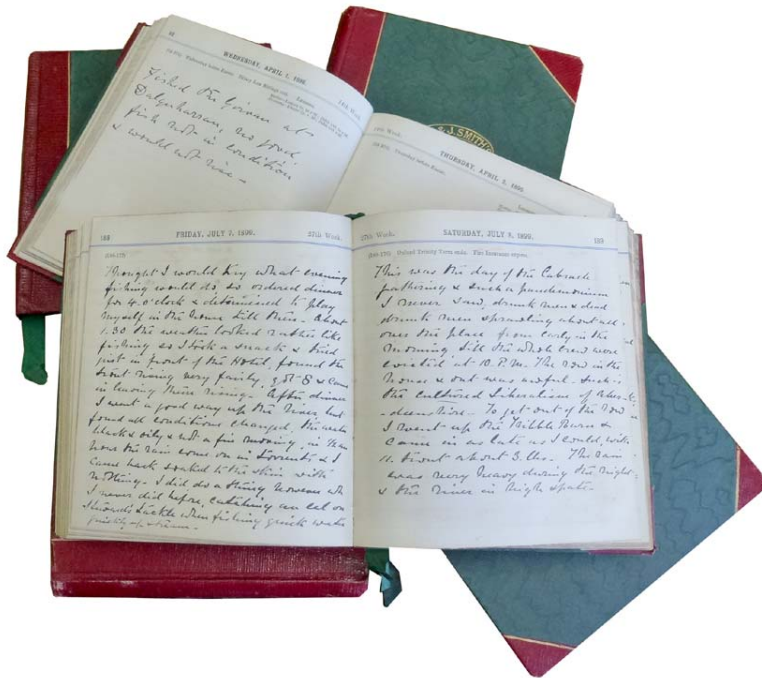 WEDNESDAY, APRIL 1, 1896.
Fished the Girvan at
Dalquharran, no good
fish not in condition
& would not rise -
14th Week.
THURSDAY, APRIL 2, 1896.
J. SMITH
188 FRIDAY, JULY 7, 1899. 27th Week.
Thought I would try what evening
fishing would do, so ordered dinner
for 4 o'clock & determined to play
myself in the house till then. About
1.30 the weather looked rather like
fishing so I took a snack & tried
just in front of the Hotel, found the
trout rising very fairly, got 8 & came
in leaving them rising. After dinner
I went a good way up the river but
found all conditions changed, the water
black & oily & not a fin moving, in
how the rain came on in torrents & I
came back soaked to the skin with
nothing. I did do a thing however wh
I never did before, catching an eel on
Stewart's tackle when fishing quick water
27th Week. SATURDAY, JULY 8, 1899. 189
Oxford Trinity Term ends. Fire Insurance expires.
This was the day of the Cabrach
gathering & such a pandemonium
I never saw, drunk men & dead
drunk men sprawling about all
over the place from early in the
morning till the whole crew were
evicted at 10 P.M. The row in the
house & out was awful. Such
the cultured Liberalism of
To get out of the row
I went up the Kibble Burn &
came in as late as I could, with
11 trout about 3 lbs. The rain
was very heavy during the night
& the river in high spate -